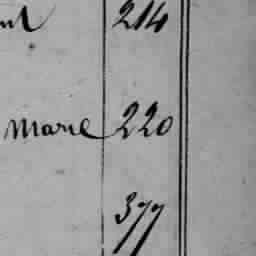 214
Marie 220
377